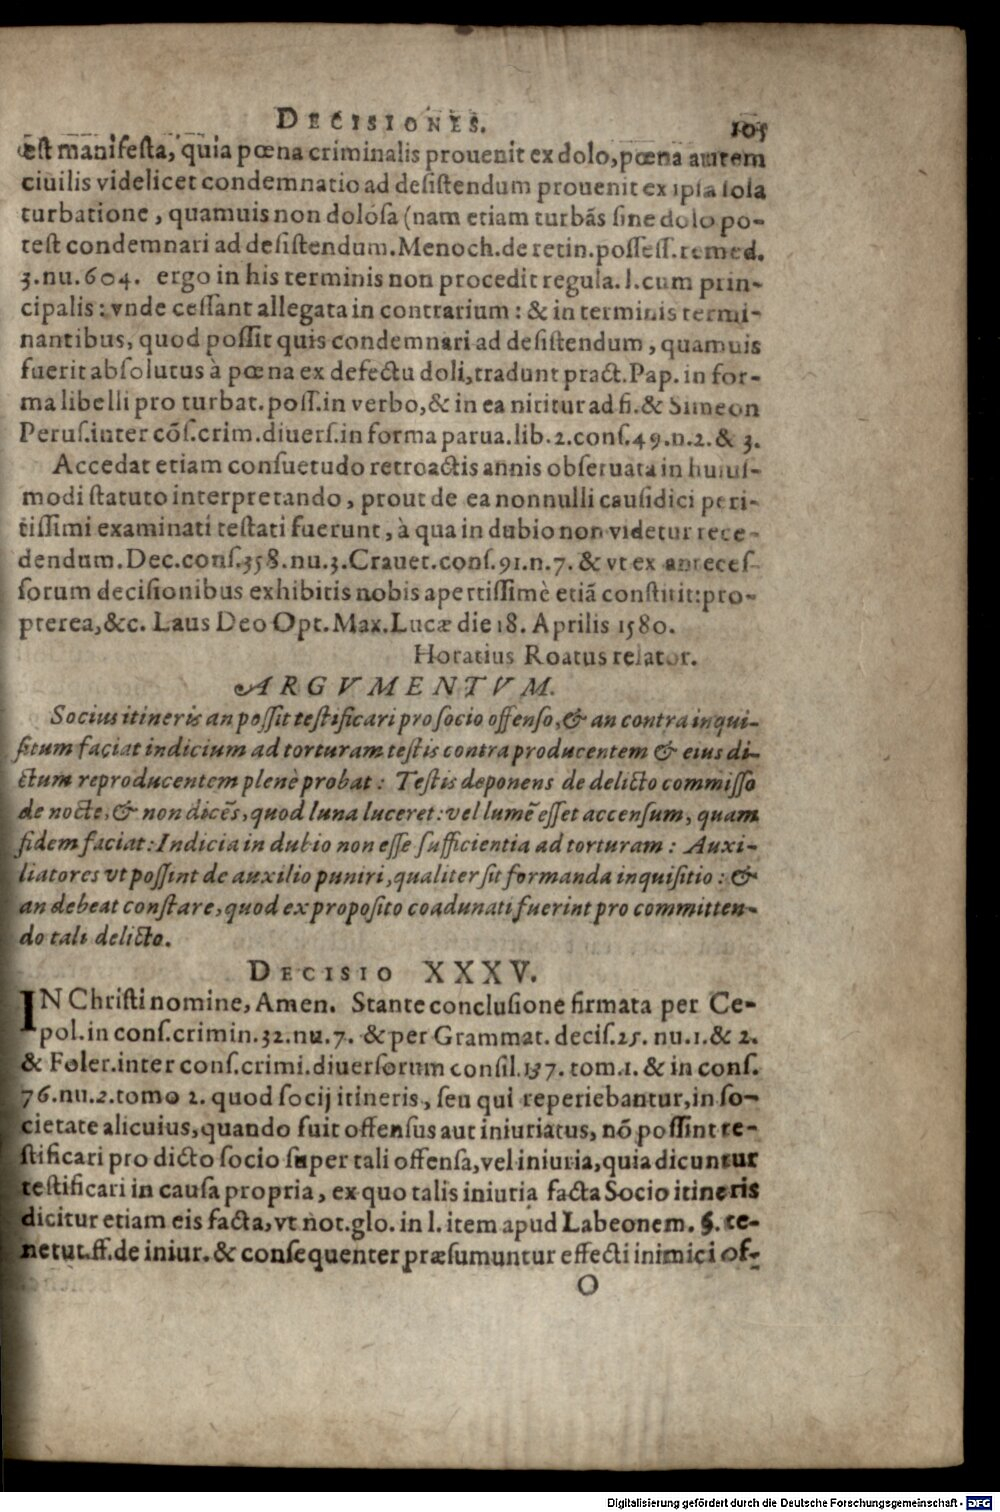 DECISIONES. 105
est manifesta, quia pœna criminalis prouenit ex dolo, pœna autem
ciuilis videlicet condemnatio ad desistendum prouenit ex ipsa sola
turbatione, quamuis non dolosa (nam etiam turbãs sine dolo po-
test condemnari ad desistendum. Menoch. de retin. possess. remed.
3. nu. 604. ergo in his terminis non procedit regula. l. cum prin-
cipalis: vnde cessant allegata in contrarium: & in terminis termi-
nantibus, quod possit quis condemnari ad desistendum, quamuis
fuerit absolutus à pœna ex defectu doli, tradunt pract. Pap. in for-
ma libelli pro turbat. poss. in verbo, & in ea nititur ad fi. & Simeon
Perus. inter cõs. crim. diuers. in forma parua. lib. 2. cons. 49. n. 2. & 3.
Accedat etiam consuetudo retroactis annis obseruata in huius-
modi statuto interpretando, prout de ea nonnulli causidici peri-
tissimi examinati testati fuerunt, à qua in dubio non videtur rece-
dendum. Dec. cons. 358. nu. 3. Crauet. cons. 91. n. 7. & vt ex anteces-
sorum decisionibus exhibitis nobis apertissimè etiã constitit: pro-
pterea, &c. Laus Deo Opt. Max. Lucæ die 18. Aprilis 1580.
Horatius Roatus relator.
ARGVMENTVM.
Socius itineris an possit testificari pro socio offenso, & an contra inqui-
situm faciat indicium ad torturam testis contra producentem & eius di-
ctum reproducentem plenè probat: Testis deponens de delicto commisso
de nocte, & non dicẽs, quod luna luceret: vel lumẽ esset accensum, quam
fidem faciat: Indicia in dubio non esse sufficientia ad torturam: Auxi-
liatores vt possint de auxilio puniri, qualiter sit formanda inquisitio: &
an debeat constare, quod ex proposito coadunati fuerint pro committen-
do tali delicto.
DECISIO XXXV.
IN Christi nomine, Amen. Stante conclusione firmata per Ce-
pol. in cons. crimin. 32. nu. 7. & per Grammat. decis. 25. nu. 1. & 2.
& Foler. inter cons. crimi. diuersorum consil. 137. tom. 1. & in cons.
76. nu. 2. tomo 2. quod socij itineris, seu qui reperiebantur, in so-
cietate alicuius, quando fuit offensus aut iniuriatus, nõ possint te-
stificari pro dicto socio super tali offensa, vel iniuria, quia dicuntur
testificari in causa propria, ex quo talis iniuria facta Socio itineris
dicitur etiam eis facta, vt not. glo. in l. item apud Labeonem. §. te-
netut. ff. de iniur. & consequenter præsumuntur effecti inimici of-
O
Digitalisierung gefördert durch die Deutsche Forschungsgemeinschaft - DFG